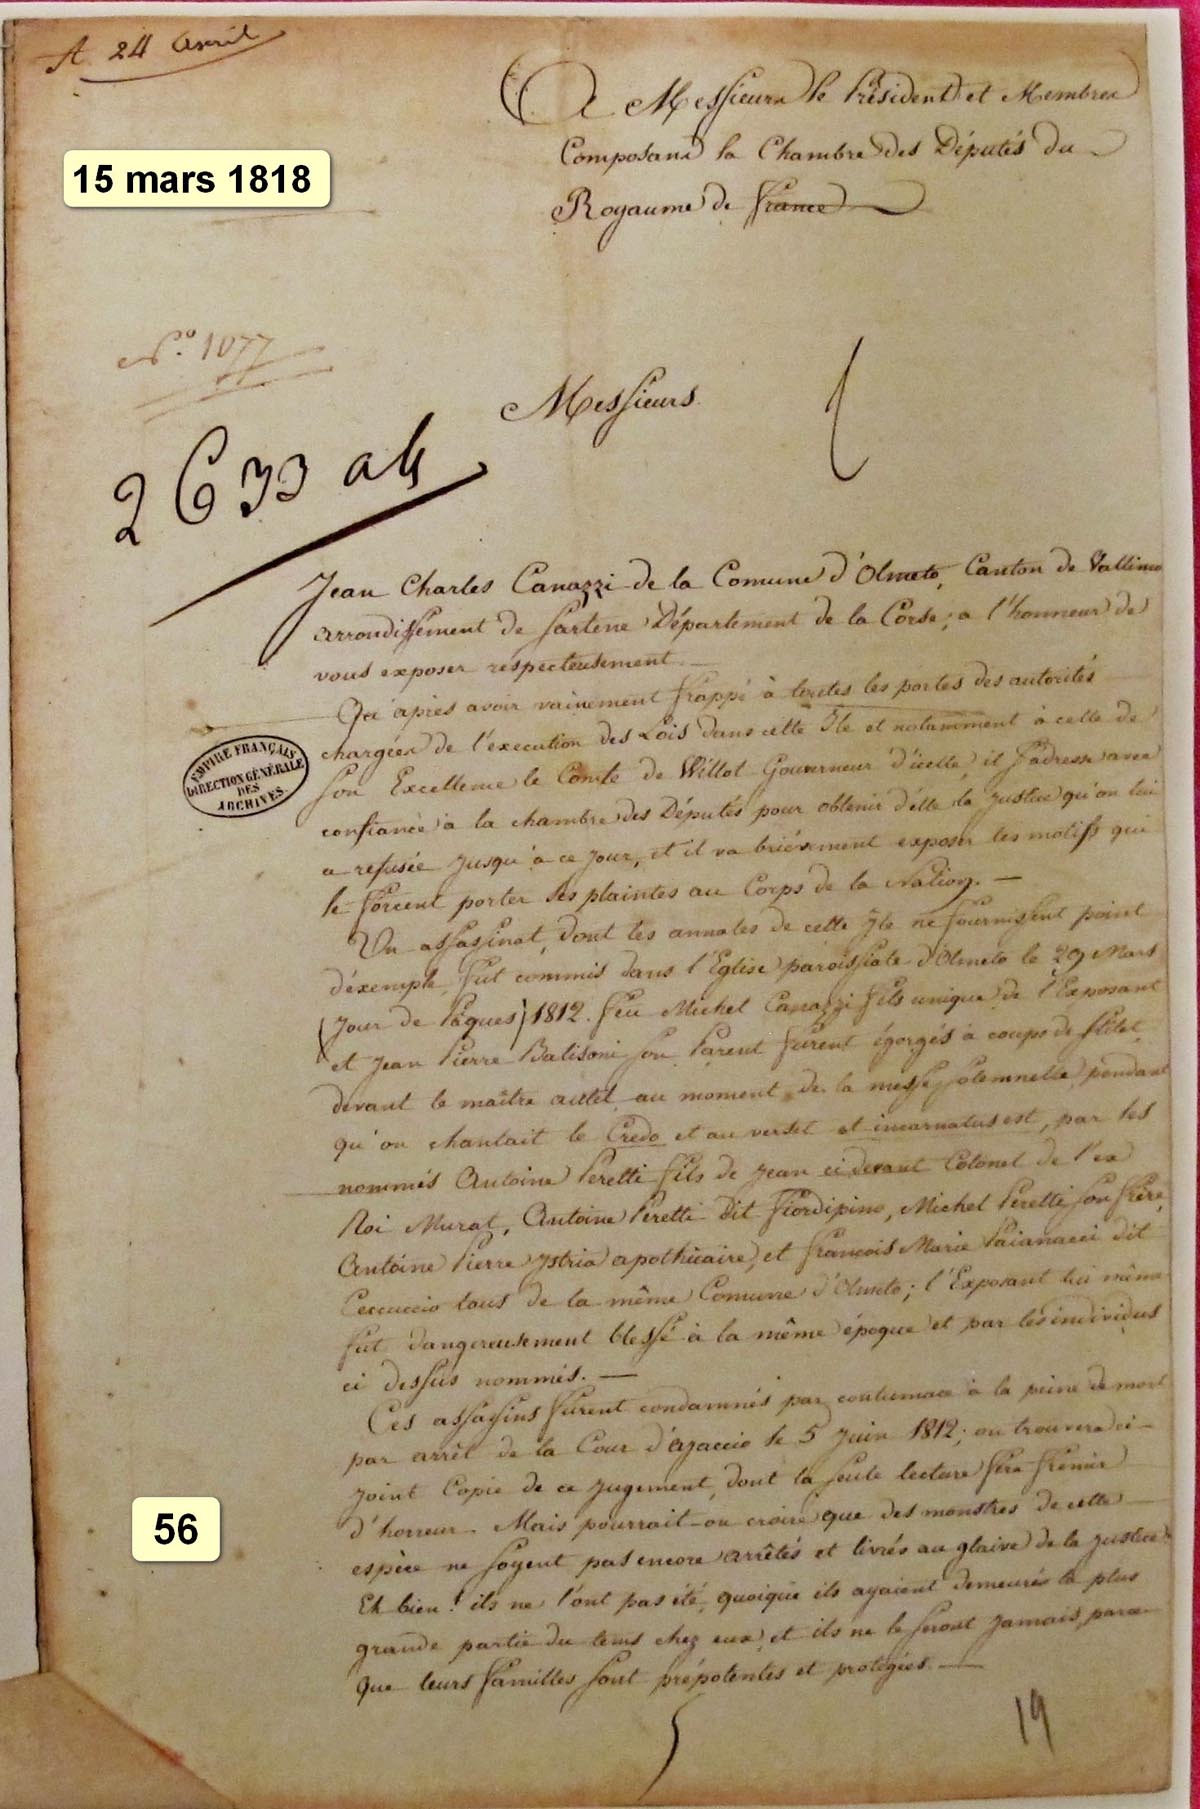 A 24 avril
A Messieurs le Président et Membres
Composant la Chambre des Députés du
Royaume de france
15 mars 1818
N.º 1077
Messieurs
2633 a4
Jean Charles Canazzi de la Comune d'Olmeto, Canton de Tallano
arrondissement de Sartene Département de la Corse; a l'honneur de
vous exposer respecteusement.
Qu'après avoir vainement frappé à toutes les portes des autorités
chargées de l'execution des Lois dans cette Ile et notamment à celle de
son Excellence le Comte de Willot Gouverneur d'icelle, il s'adresse avec
confiance à la chambre des Députés pour obtenir d'elle la justice qu'on lui
a refusée jusqu'à ce jour, et il va briévement exposer les motifs qui
le forcent porter ses plaintes au Corps de la Nation. —
EMPIRE FRANÇAIS
DIRECTION GÉNÉRALE
DES
ARCHIVES.
Un assasinat, dont les annales de cette Ile ne fournissent point
d'éxemple, fut commis dans l'Eglise paroissiale d'Olmeto le 29 Mars
(jour de Pâques) 1812. feu Michel Canazzi fils unique de l'Exposant
et Jean Pierre Balisoni son Parent furent égorgés à coups de stilet,
devant le maître autel au moment de la messe solemnelle, pendant
qu'on chantait le Credo et au verset et incarnatus est, par les
nommés Antoine Peretti fils de Jean ci devant Colonel de l'ex
Roi Murat, Antoine Peretti dit Fiordipino, Michel Peretti son frère,
Antoine Pierre Istria apothicaire, et François Marie Paianacci dit
Ceccuccio tous de la même Comune d'Olmeto; l'Exposant lui même
fut dangereusement blessé à la même époque et par les individus
ci dessus nommés. —
Ces assassins furent condamnés par contumace à la peine de mort
par arrêt de la Cour d'ajaccio le 5 Juin 1812; on trouvera ci-
joint Copie de ce jugement, dont la seule lecture fera frémir
d'horreur. Mais pourrait-on croire que des monstres de cette
espèce ne soyent pas encore arrêtés et livrés au glaive de la justice?
Eh bien! ils ne l'ont pas été, quoique ils ayaient demeurés la plus
grande partie du tems chez eux, et ils ne le seront jamais, parce
que leurs familles sont prépotentes et protégées. —
56
19